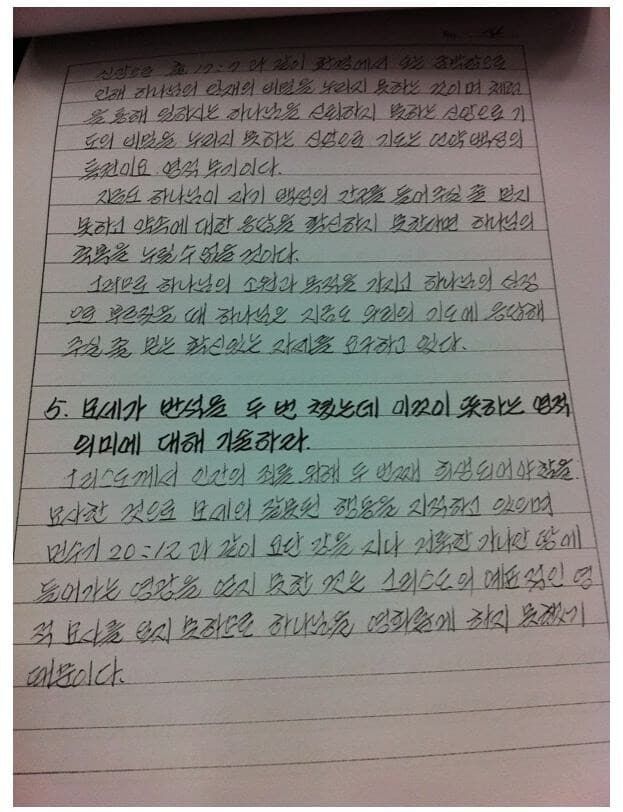 신앙으로 출 17:7 과 같이 광야에서 오는 불안으로
인해 하나님의 임재의 비밀을 누리지 못하는 것이며 제단
을 통해 일하시는 하나님을 신뢰하지 못하는 신앙으로 기
도의 비밀을 누리지 못하는 신앙으로 기도는 언약 백성의
특권이요 영적 무기이다.
지금도 하나님이 자기 백성의 간구를 들어주실 줄 믿지
못하고 약속에 대한 응답을 확신하지 못한다면 하나님의
축복을 누릴 수 없을 것이다.
그러므로 하나님의 소원과 목적을 가지고 하나님의 심정
으로 부르짖을 때 하나님은 지금도 우리의 기도에 응답해
주실 줄 믿는 확신있는 자세를 요구하고 있다.
5. 모세가 반석을 두 번 쳤는데 이것이 뜻하는 영적
의미에 대해 기술하라.
그리스도께서 인간의 죄를 위해 두 번째 희생되어야 함을
묘사한 것으로 모세의 잘못된 행동을 지적하고 있으며
민수기 20:12 과 같이 요단 강을 지나 거룩한 가나안 땅에
들어가는 영광을 얻지 못한 것은 그리스도의 예표적인 영
적 묘사를 하지 못하므로 하나님을 영화롭게 하지 못했기
때문이다.